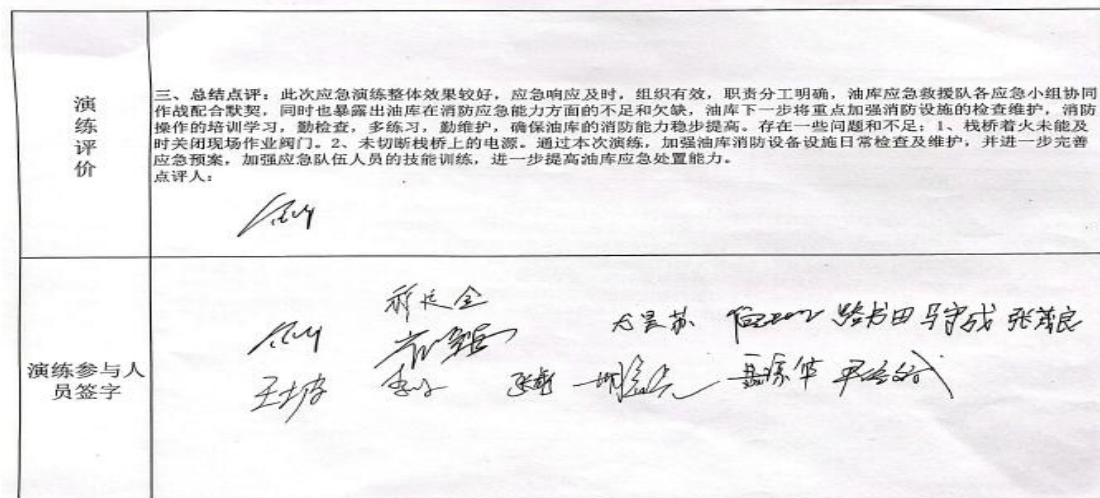 演
练
评
价
三、总结点评：此次应急演练整体效果较好，应急响应及时，组织有效，职责分工明确，油库应急救援队各应急小组协同
作战配合默契，同时也暴露出油库在消防应急能力方面的不足和欠缺，油库下一步将重点加强消防设施的检查维护，消防
操作的培训学习，勤检查，多练习，勤维护，确保油库的消防能力稳步提高。存在一些问题和不足；1、栈桥着火未能及
时关闭现场作业阀门。2、未切断栈桥上的电源。通过本次演练，加强油库消防设备设施日常检查及维护，并进一步完善
应急预案，加强应急队伍人员的技能训练，进一步提高油库应急处置能力。
点评人：
演练参与人
员签字
路书田 马守成 张茂良